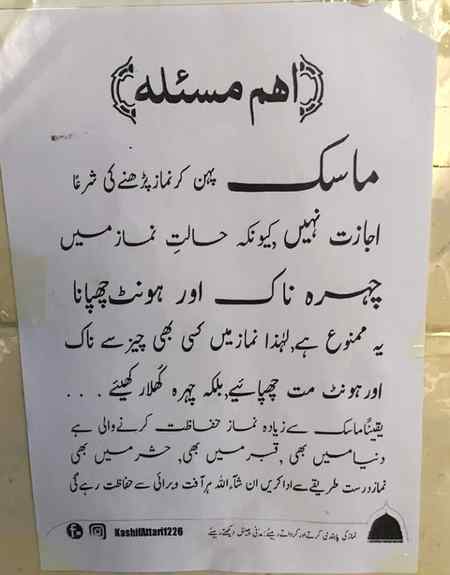 اہم مسئلہ
ماسک پہن کر نماز پڑھنے کی شرعاً
اجازت نہیں ,کیونکہ حالتِ نماز میں
چہرہ ناک اور ہونٹ چھپانا
یہ ممنوع ہے,لہٰذا نماز میں کسی بھی چیز سے ناک
اور ہونٹ مت چھپائیے,بلکہ چہرہ کُھلا رکھیئے ...
یقیناً ماسک سے زیادہ نماز حفاظت کرنے والی ہے
دنیا میں بھی , قبر میں بھی, حشر میں بھی
نماز درست طریقے سے ادا کریں ان شآءاللہ ہر آفت و برائی سے حفاظت رہے گی
KashifAttari1226
نماز کی پابندی کرتے اور کرواتے رہیئے, مدنی چینل دیکھتے رہیئے